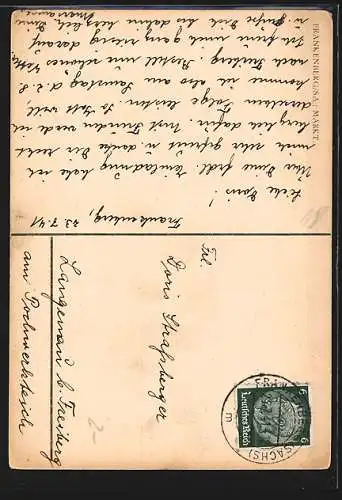 FRANKENBERG/SA.: MARKT
Frankenberg, 23.7.41
Liebe Doris!
Über Deine frdl. Einladung habe ich
mich sehr gefreut u. danke Dir recht
herzlich dafür. Mit Freuden werde ich
derselben Folge leisten. Ich will
komme ich also am Sonnabend, d. 2.8.
nach Freiberg. Bestell nur schönes Wetter.
Ich freue mich ganz riesig darauf
u. grüße Dich bis dahin herzlich
Deine
Marianne
Frl.
Doris Straßberger
Langenau b. Freiberg
am Pochwerkteich
Deutsches Reich
6 6
(SACHS)
E